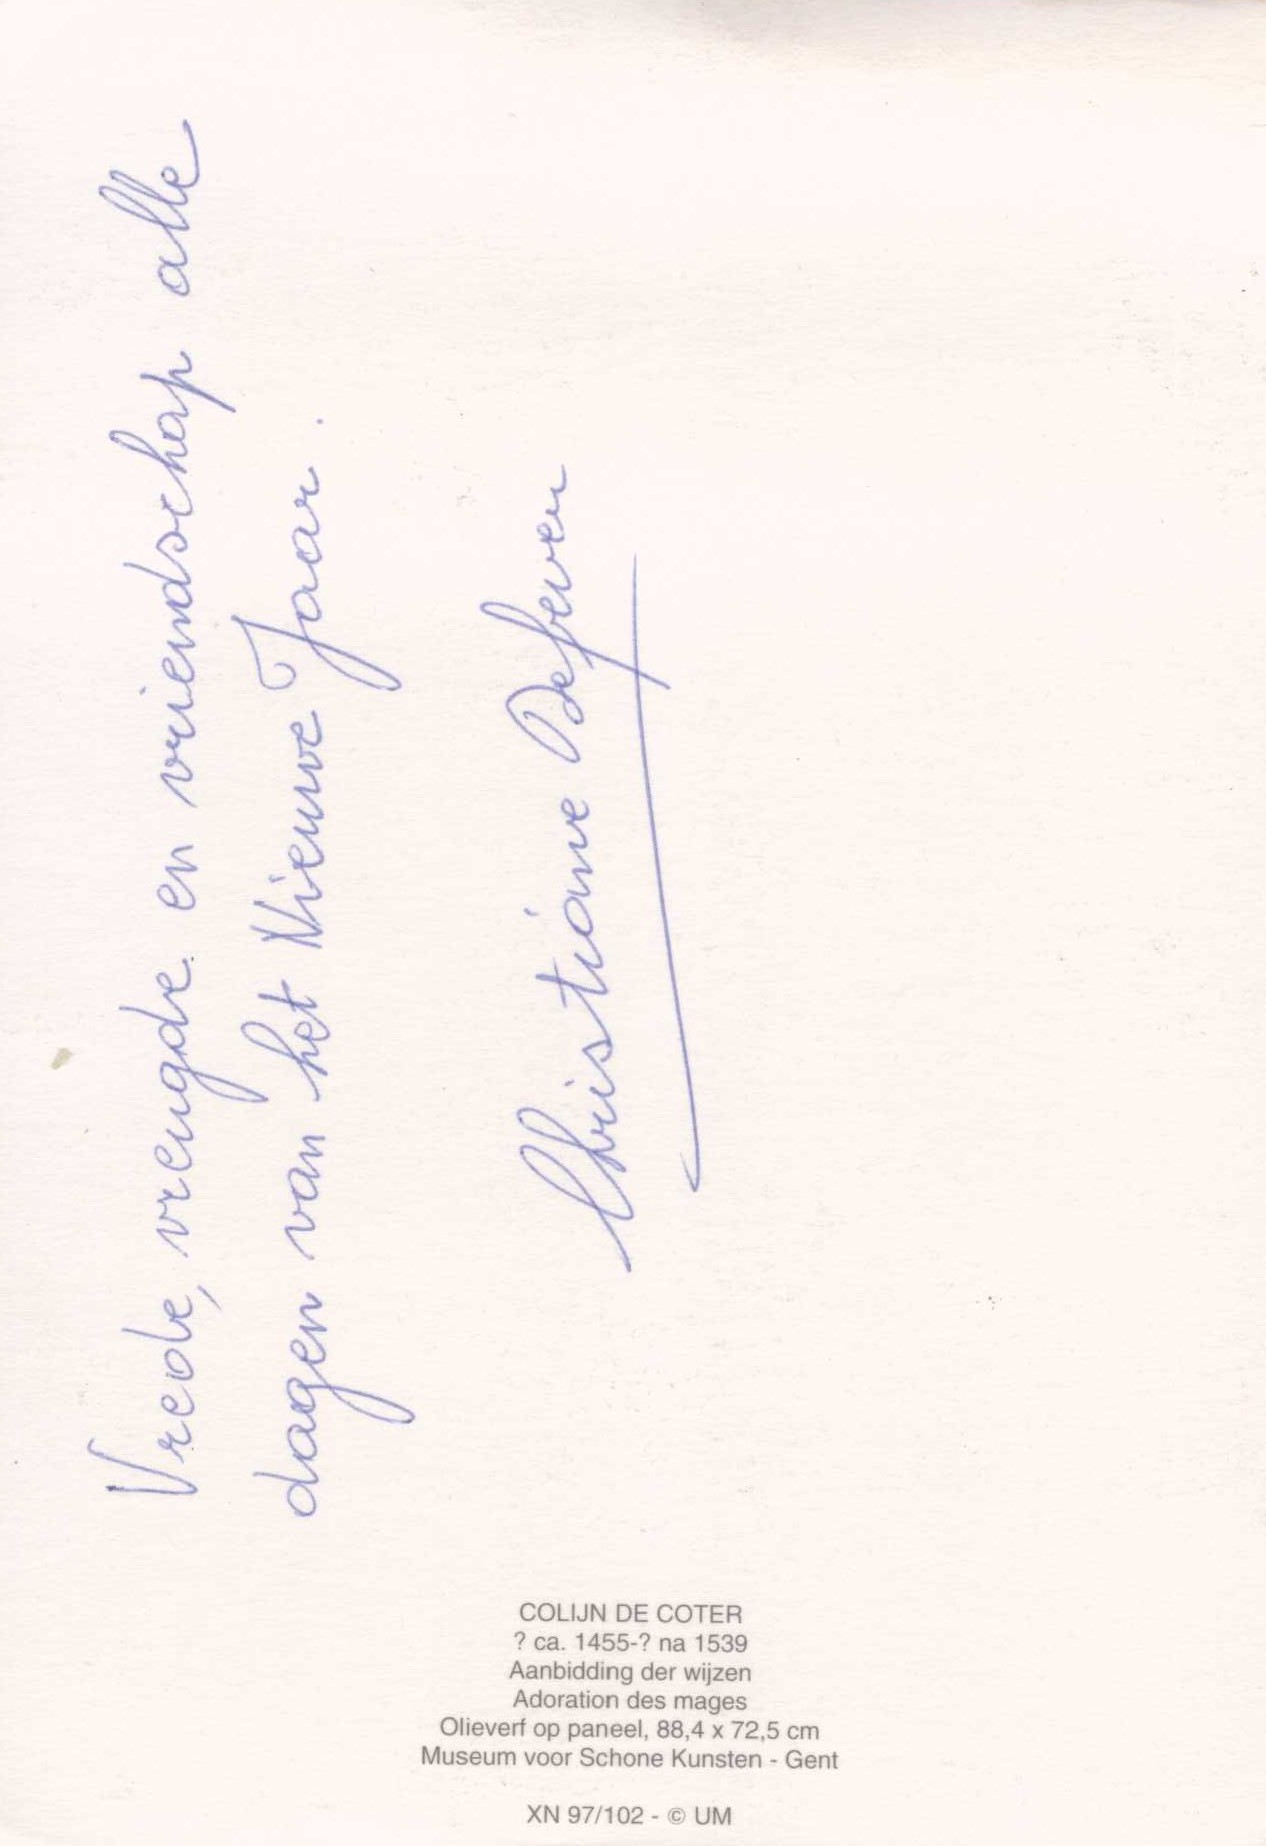 Vrede, vreugde en vriendschap alle
dagen van het Nieuwe Jaar.
Christiane Defever
COLIJN DE COTER
? ca. 1455-? na 1539
Aanbidding der wijzen
Adoration des mages
Olieverf op paneel, 88,4 x 72,5 cm
Museum voor Schone Kunsten - Gent
XN 97/102 - © UM